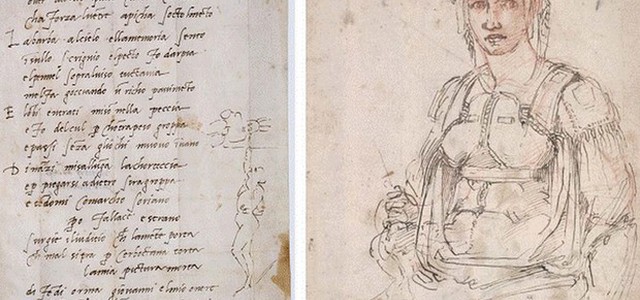 cha forza luētre apicha socto lmento
La barba alcielo ellamemoria sento
in sullo scrignio elpecto fo darpia
elpennel sopraluiso tuctauia
mel fa gocciando ū richo pauimento
E lōbi entrati mi nella peccia
e fo delcul p chōtrapeso groppa
e passi sēza gliochi muouo inuano
Dināzi misallūga lachorteccia
e p piegarsi adietro siragroppa
e tēdomi comarcho soriano
po fallace e strano
surgie iliuditio ch lamēte porta
ch mal si p cerboctana torta
lamia pictura morta
di fēdi orma giouanni elmio onore